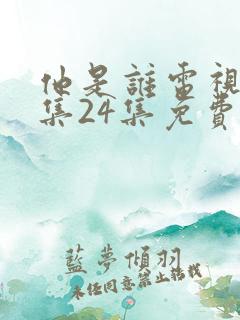 他是誰電視
集24集免費
藍夢傾羽
未經同意禁止轉載